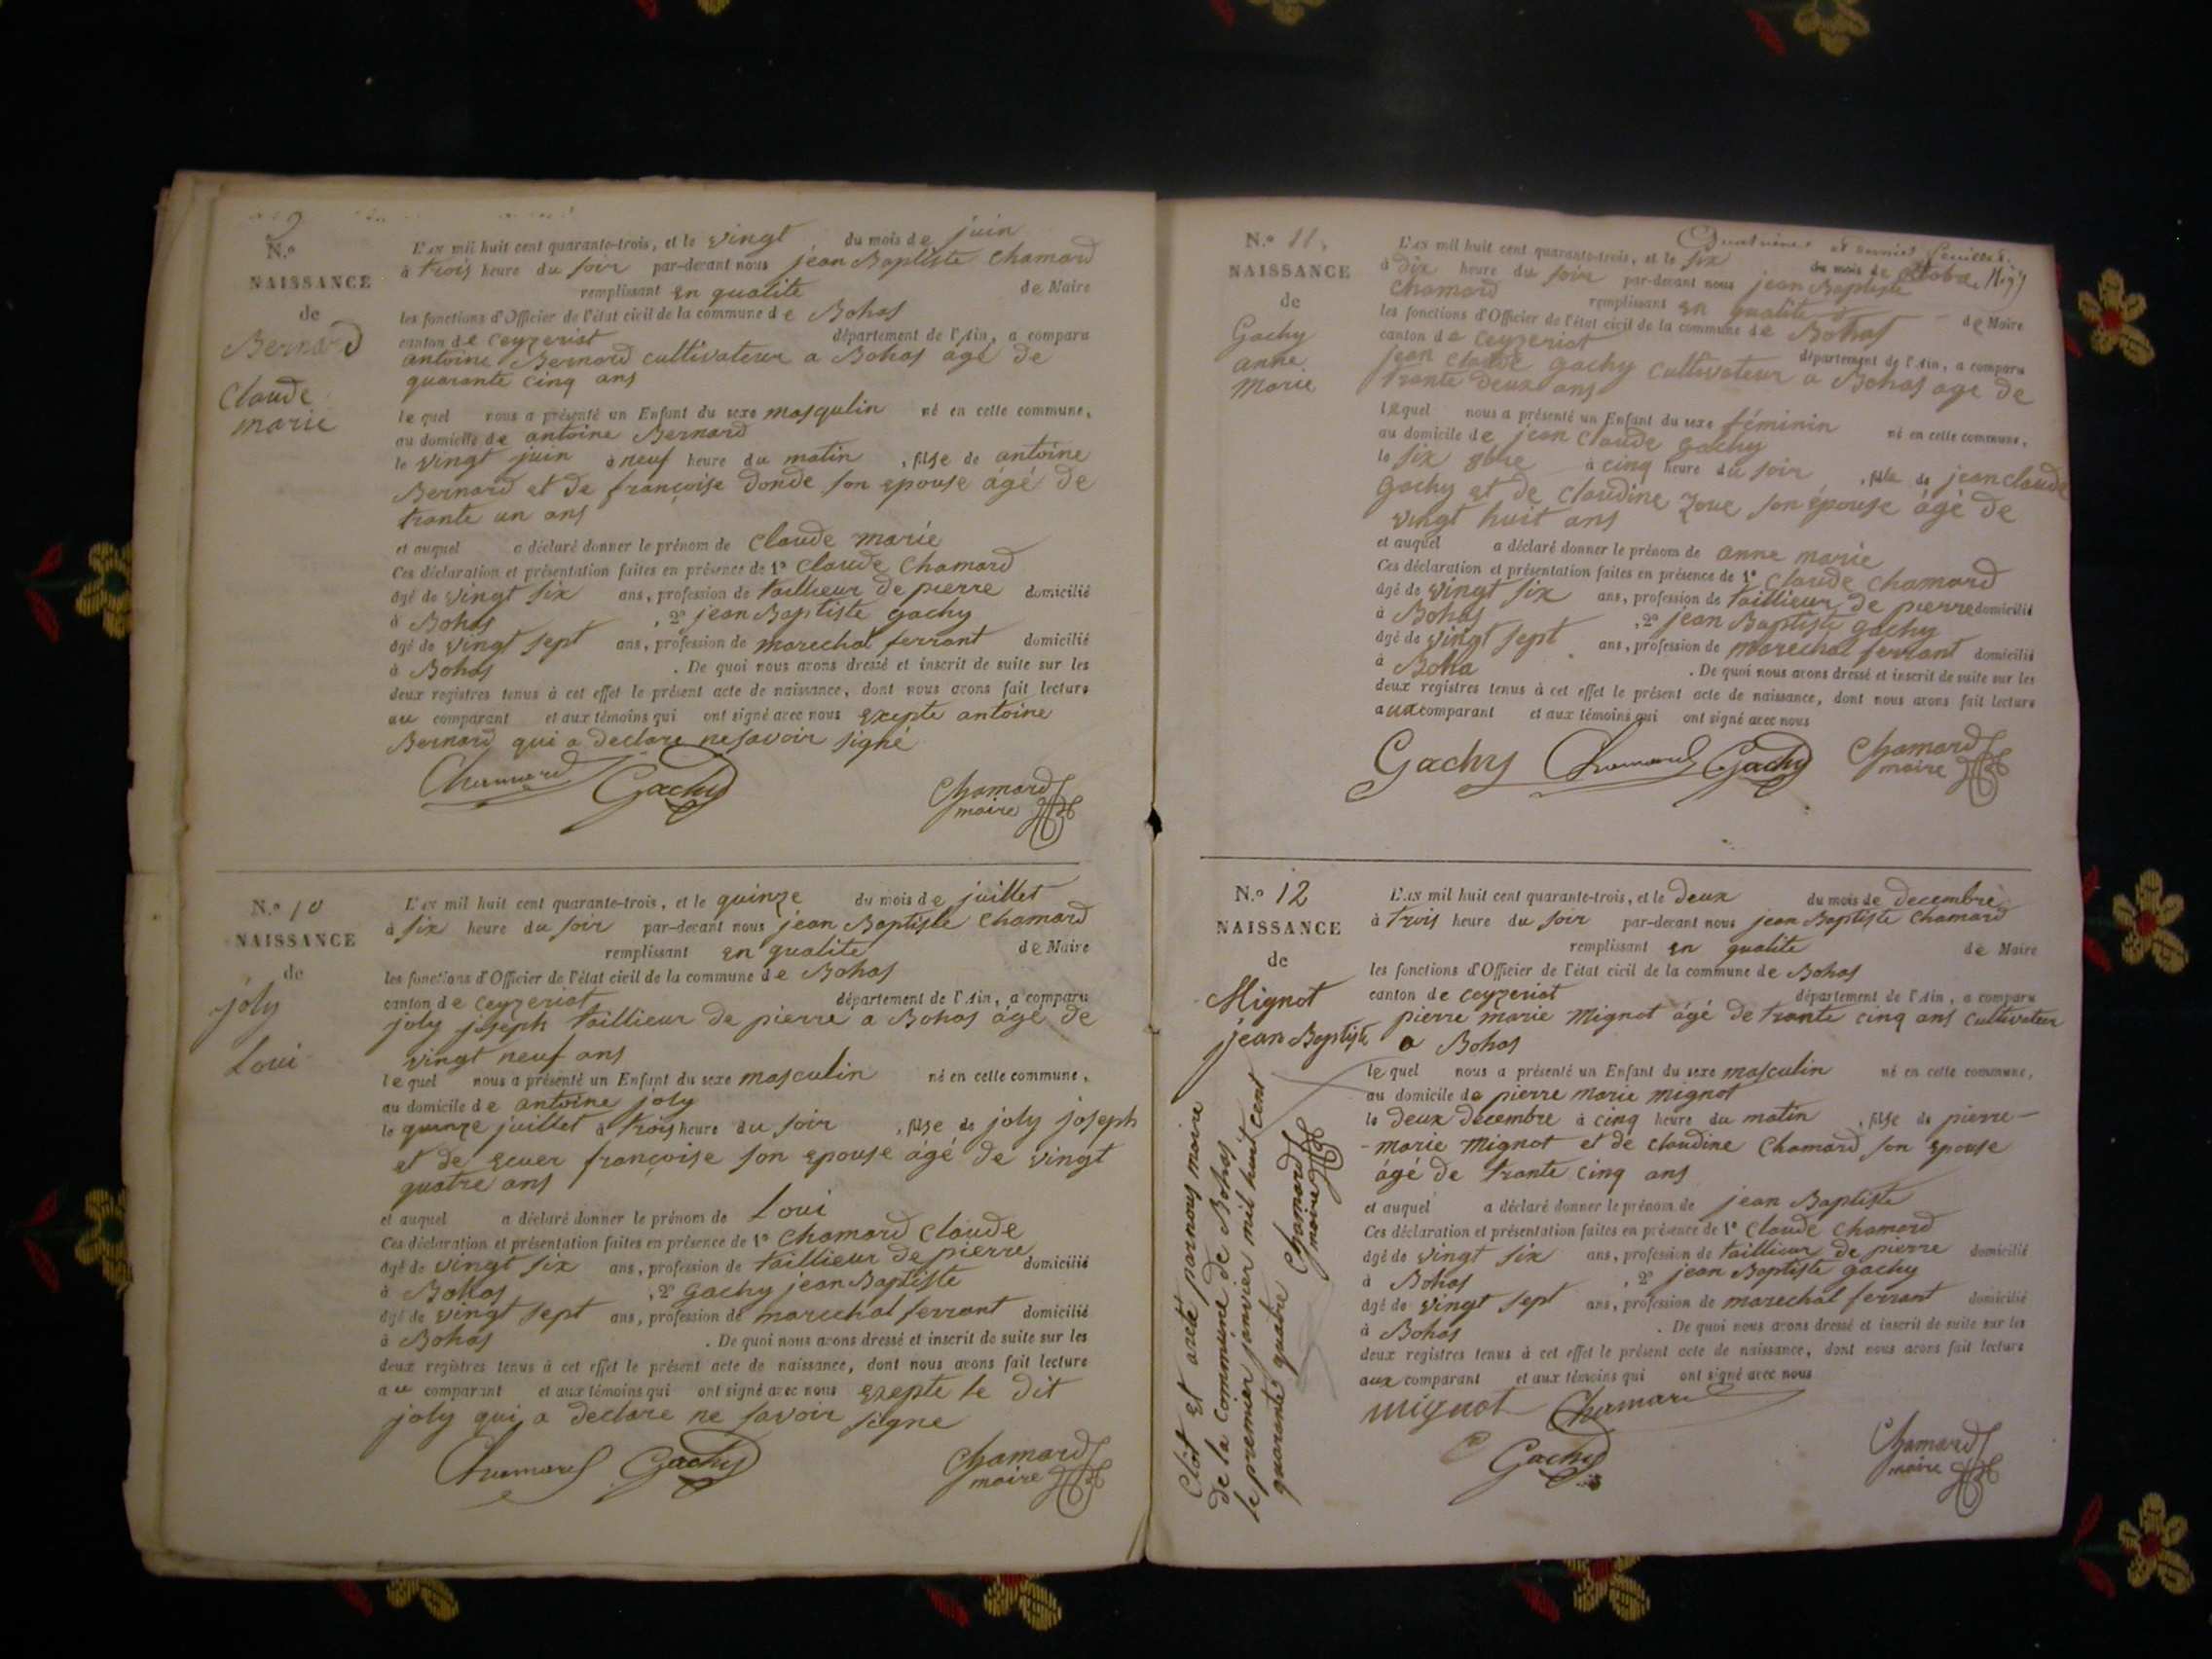 9
N.º
NAISSANCE
de
Bernard
Claude
marie
L'AN mil huit cent quarante-trois, et le vingt du mois de juin
à trois heure du soir par-devant nous jean Baptiste Chamard
remplissant en qualite de Maire
les fonctions d'Officier de l'état civil de la commune de Bohas
canton de Ceyzeriat département de l'Ain, a comparu
antoine Bernard cultivateur a Bohas agé de
quarante cinq ans
le quel nous a présenté un Enfant du sexe masqulin né en cette commune,
au domicile de antoine Bernard
le vingt juin à neuf heure du matin , fils de antoine
Bernard et de françoise Donde son epouse âgé de
trante un ans
et auquel a déclaré donner le prénom de Claude marie
Ces déclaration et présentation faites en présence de 1º Claude Chamard
âgé de vingt six ans, profession de taillieur de pierre domicilié
à Bohas , 2º jean Baptiste gachy
âgé de vingt sept ans, profession de marechal ferrant domicilié
à Bohas . De quoi nous avons dressé et inscrit de suite sur les
deux registres tenus à cet effet le présent acte de naissance, dont nous avons fait lecture
au comparant et aux témoins qui ont signé avec nous exepte antoine
Bernard qui a declare ne savoir signé
Chamard Gachy Chamard
maire
N.º 10
NAISSANCE
de
joly
Loui
L'AN mil huit cent quarante-trois, et le quinze du mois de juillet
à six heure du soir par-devant nous jean Baptiste Chamard
remplissant en qualite de Maire
les fonctions d'Officier de l'état civil de la commune de Bohas
canton de Ceyzeriat département de l'Ain, a comparu
joly joseph taillieur de pierre a Bohas âgé de
vingt neuf ans
le quel nous a présenté un Enfant du sexe masculin né en cette commune,
au domicile de antoine joly
le quinze juillet à trois heure du soir , fils de joly joseph
et de françoise son epouse âgé de vingt
quatre ans
et auquel a déclaré donner le prénom de Loui
Ces déclaration et présentation faites en présence de 1º Chamard Claude
âgé de vingt six ans, profession de taillieur de pierre domicilié
à Bohas , 2º Gachy jean Baptiste
âgé de vingt sept ans, profession de marechal ferrant domicilié
à Bohas . De quoi nous avons dressé et inscrit de suite sur les
deux registres tenus à cet effet le présent acte de naissance, dont nous avons fait lecture
au comparant et aux témoins qui ont signé avec nous exepte le dit
joly qui a declare ne savoir signe
Chamard Gachy Chamard
maire
Quatrieme et dernier feuillet.
N.º 11.
NAISSANCE
de
Gachy
anne
Marie
L'AN mil huit cent quarante-trois, et le six du mois de octobre
à dix heure du soir par-devant nous jean Baptiste
Chamard remplissant en qualite de Maire
les fonctions d'Officier de l'état civil de la commune de Bohas
canton de Ceyzeriat département de l'Ain, a comparu
jean Claude gachy cultivateur a Bohas age de
trante deux ans
lequel nous a présenté un Enfant du sexe féminin né en cette commune,
au domicile de jean Claude gachy
le six 8bre à cinq heure du soir , fille de jean claude
gachy et de claudine son épouse âgé de
vingt huit ans
et auquel a déclaré donner le prénom de anne marie
Ces déclaration et présentation faites en présence de 1º Claude Chamard
âgé de vingt six ans, profession de taillieur de pierre domicilié
à Bohas , 2º jean Baptiste gachy
âgé de vingt sept ans, profession de marechal ferrant domicilié
à Boha . De quoi nous avons dressé et inscrit de suite sur les
deux registres tenus à cet effet le présent acte de naissance, dont nous avons fait lecture
aux comparant et aux témoins qui ont signé avec nous
Gachy Chamard Gachy Chamard
maire
N.º 12
NAISSANCE
de
Mignot
jean Baptiste
L'AN mil huit cent quarante-trois, et le deux du mois de decembre
à trois heure du soir par-devant nous jean Baptiste Chamard
remplissant en qualite de Maire
les fonctions d'Officier de l'état civil de la commune de Bohas
canton de ceyzeriat département de l'Ain, a comparu
pierre marie Mignot âgé de trante cinq ans cultivateur
a Bohas
le quel nous a présenté un Enfant du sexe masculin né en cette commune,
au domicile de pierre marie mignot
le deux decembre à cinq heure du matin , fils de pierre-
-marie Mignot et de claudine Chamard son epouse
âgé de trante cinq ans
et auquel a déclaré donner le prénom de jean Baptiste
Ces déclaration et présentation faites en présence de 1º Claude Chamard
âgé de vingt six ans, profession de taillieur de pierre domicilié
à Bohas , 2º jean Baptiste gachy
âgé de vingt sept ans, profession de marechal ferrant domicilié
à Bohas . De quoi nous avons dressé et inscrit de suite sur les
deux registres tenus à cet effet le présent acte de naissance, dont nous avons fait lecture
aux comparant et aux témoins qui ont signé avec nous
mignot Chamard
Gachy Chamard
maire
Clôt et areté par nous maire
de la Commune de Bohas
le premier janvier mil huit cent
quarante quatre Chamard
maire